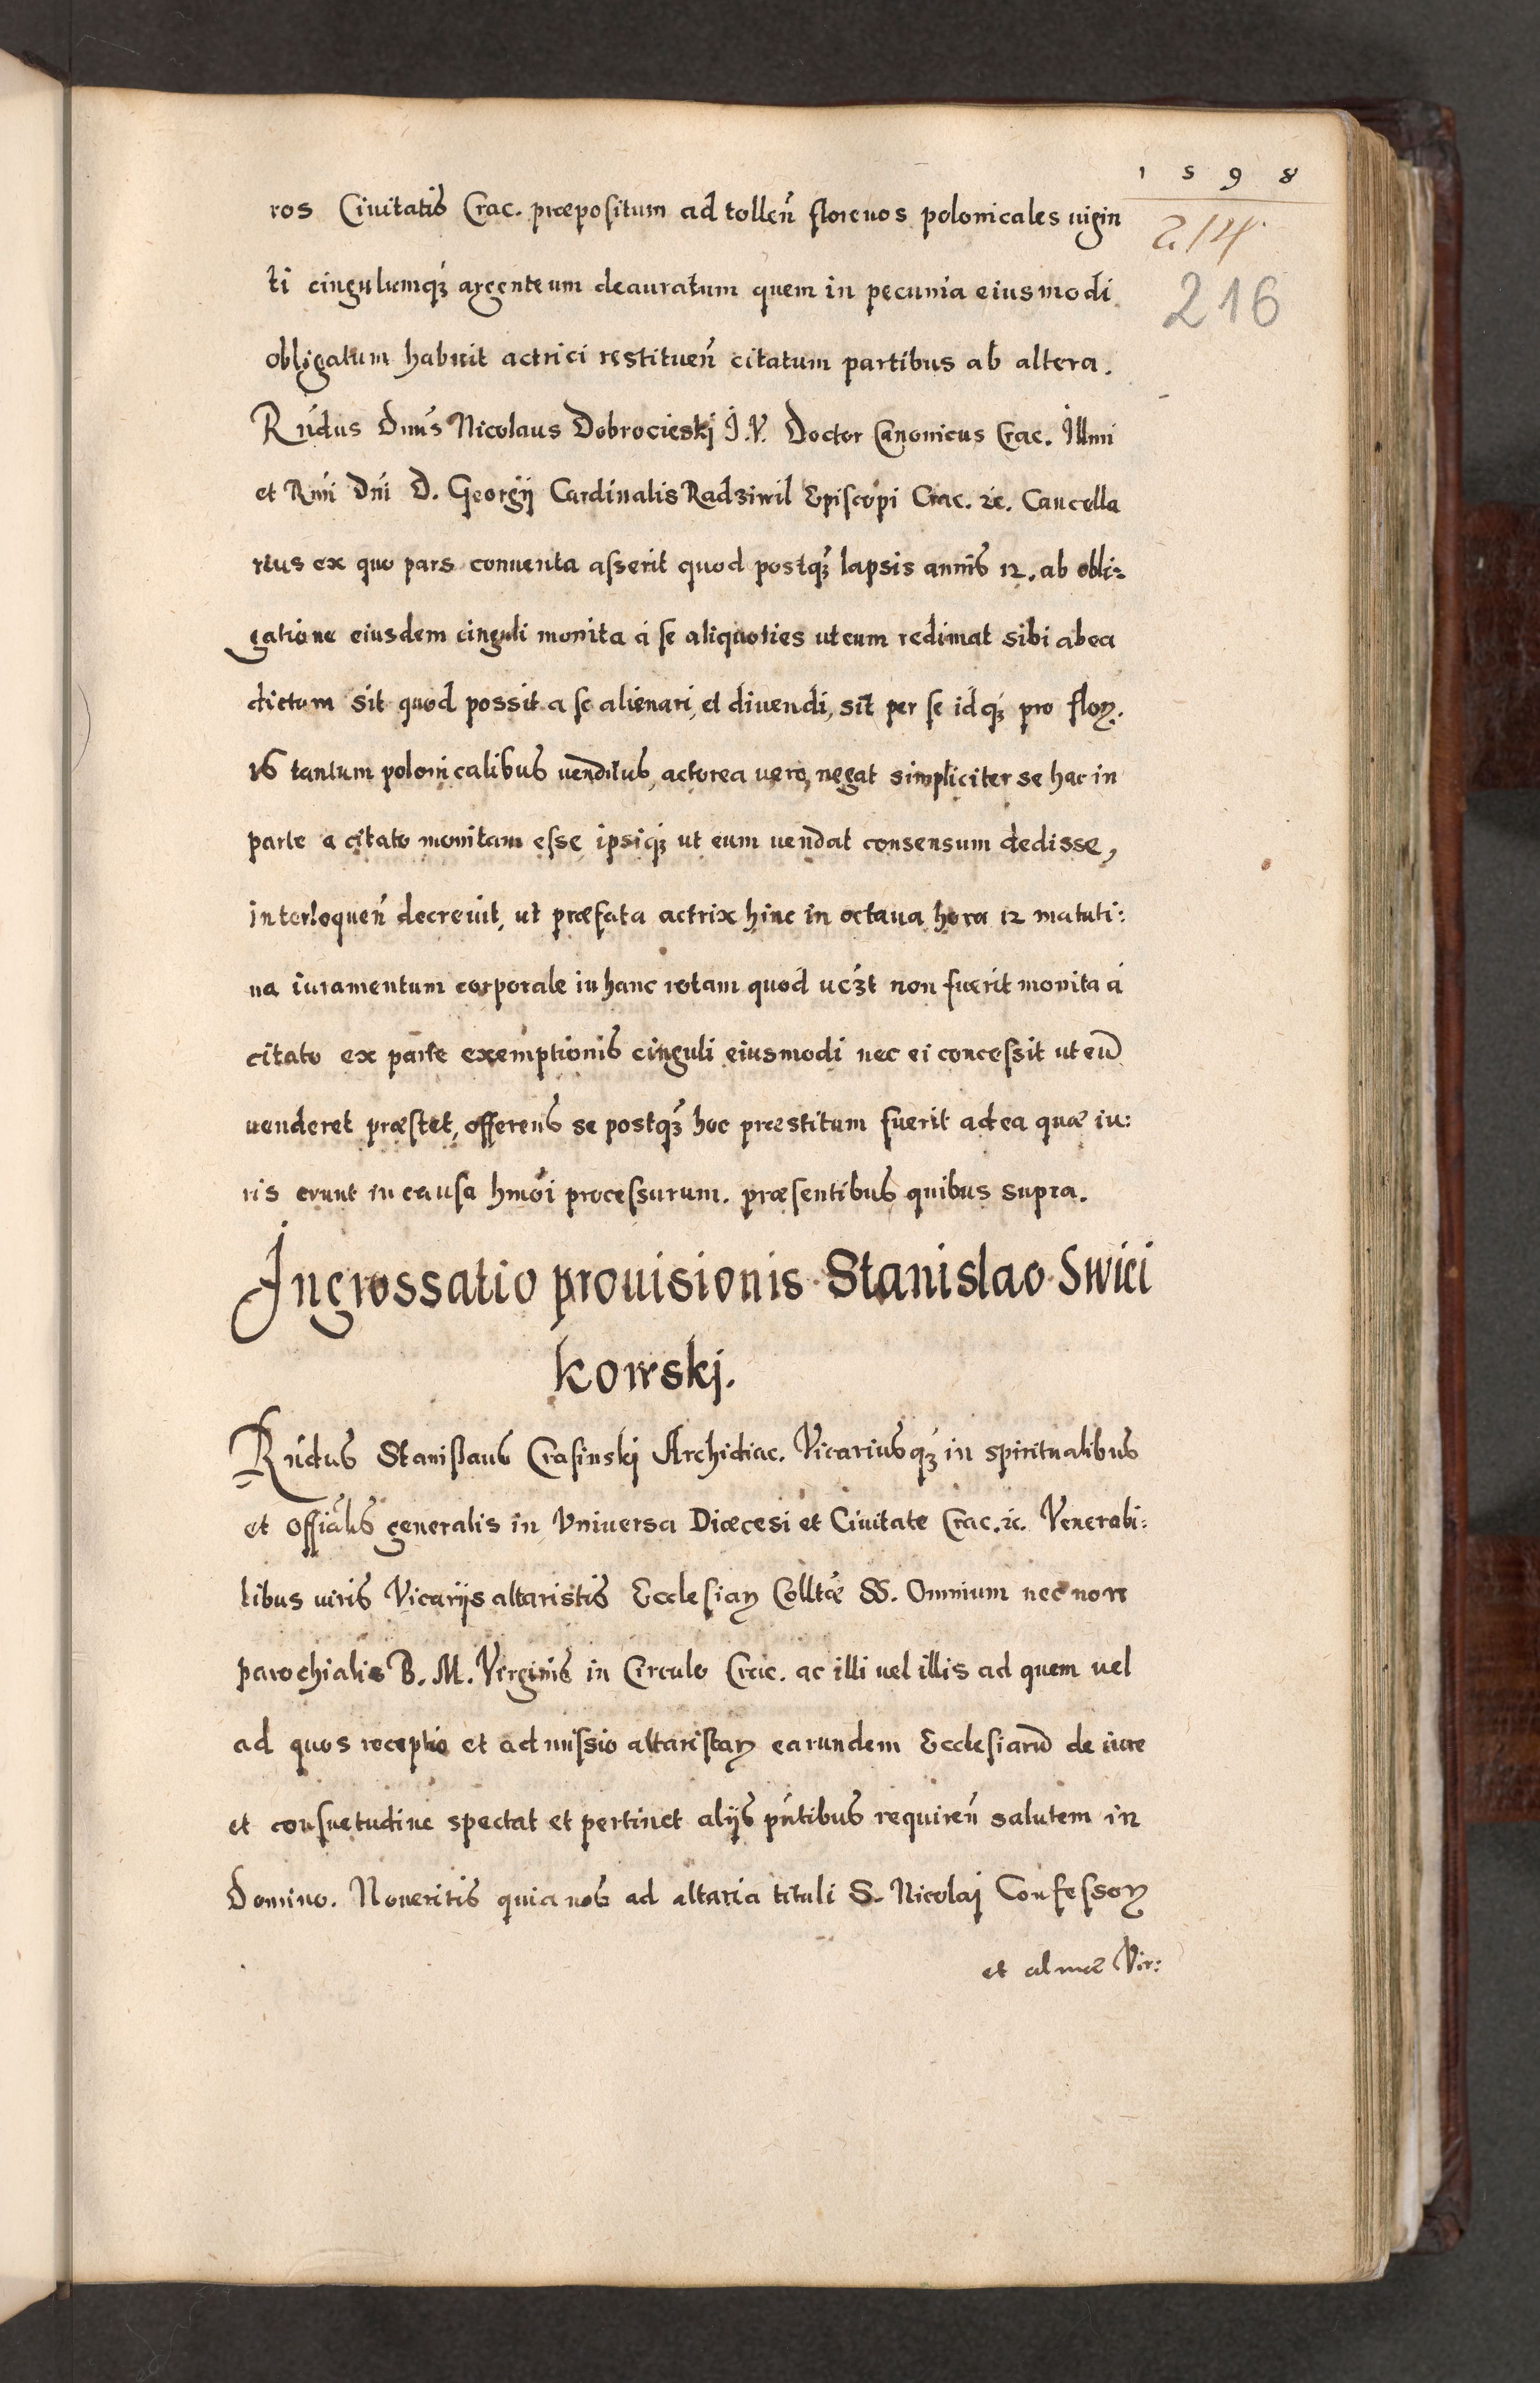 1 5 9 8
214
216
ros Ciuitatis Crac. præpositum ad tolleñ florenos polonicales uigin
ti cingulumqꝫ argenteum deauratum quem in pecunia eiusmodi
obligatum habuit actrici restitueñ citatum partibus ab altera.
Rńdus Dnús Nicolaus Dobrocieskj J.V. Doctor Canonicus Crac. Illmi
et Rmí Dńi D. Georgÿ Cardinalis Radziwil Episcopi Crac. ꝛc. Cancella
rius ex quo pars conuenta aſserit quod postqꝫ́ lapsis annis 12. ab obli:
gatione eiusdem cinguli monita á se aliquoties ut eum redimat sibi ab ea
dictum sit quod possit a se alienari, et diuendi, sit per se idqꝫ́ pro floꝝ.
16 tantum polonicalibus venditus, actorea uero negat simpliciter se hac in
parte a citato monitam eſse ipsiqꝫ́ ut eum uendat consensum dedisse,
interloqueñ decreuit, ut præfata actrix hinc in octaua hora 12 matuti:
na iuramentum corporale in hanc rotam quod uꝫt non fuerit monita á
citato ex parte exemptionis cinguli eiusmodi nec ei conceſsit ut eũ
uenderet præstet, offerens se postqꝫ́ hoc præstitum fuerit ad ea quæ iu:
ris erunt in causa hmói proceſsurum. præsentibus quibus supra.
Ingrossatio prouisionis Stanislao Swici
kowskj.
Rńdus Staniſlaus Crasinskj Archidiac. Vicariusqꝫ́ in spiritualibus
et Offiális generalis in Vniuersa Diæcesi et Ciuitate Crac. ꝛc. Venerabi:
libus uiris Vicarÿs altaristis Ecclesiaꝝ Colltæ SS. Omnium nec non
parochialis B. M. Virginis in Circulo Crac. ac illi uel illis ad quem uel
ad quos receptio et admiſsio altaristaꝝ earundem Ecclesiarũ de iure
et consuetudine spectat et pertinet alÿs pńtibus requireñ salutem in
Domino. Noueritis quia nos ad altaria tituli S. Nicolaj Confeſsoꝝ
et almæ Vir: